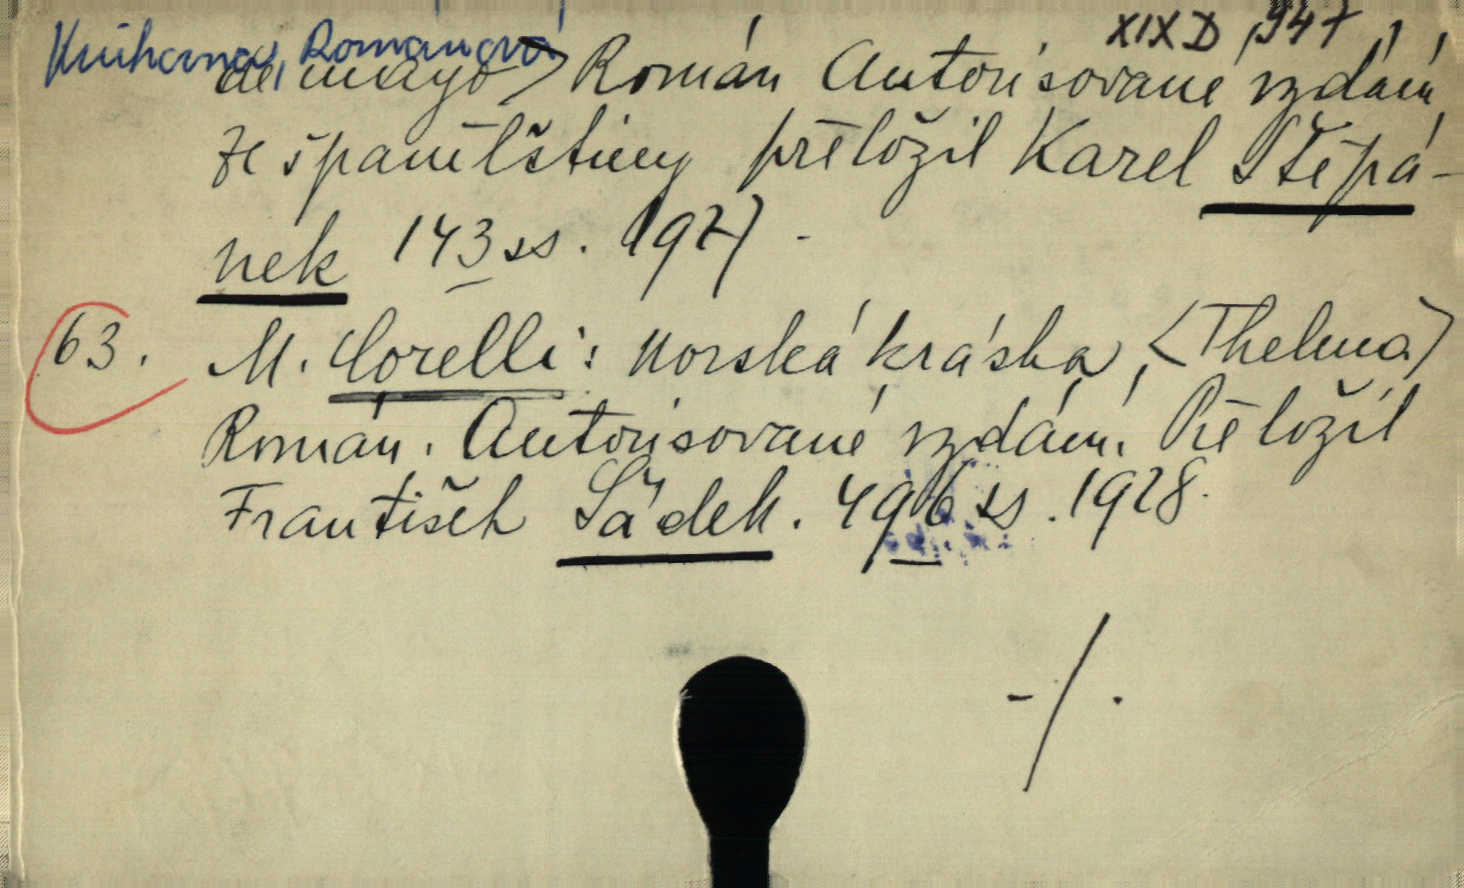 Knihovna, Románová XIX D 947
de mayo> Román Autorisované vydání
ze španělštiny přeložil Karel Štěpá-
nek 143 ss. 1927 -
63. M. Corelli: Norská kráska <Thelma>
Román. Autorisované vydání. Přeložil
František Sádek. 496 ss. 1928.
-/.